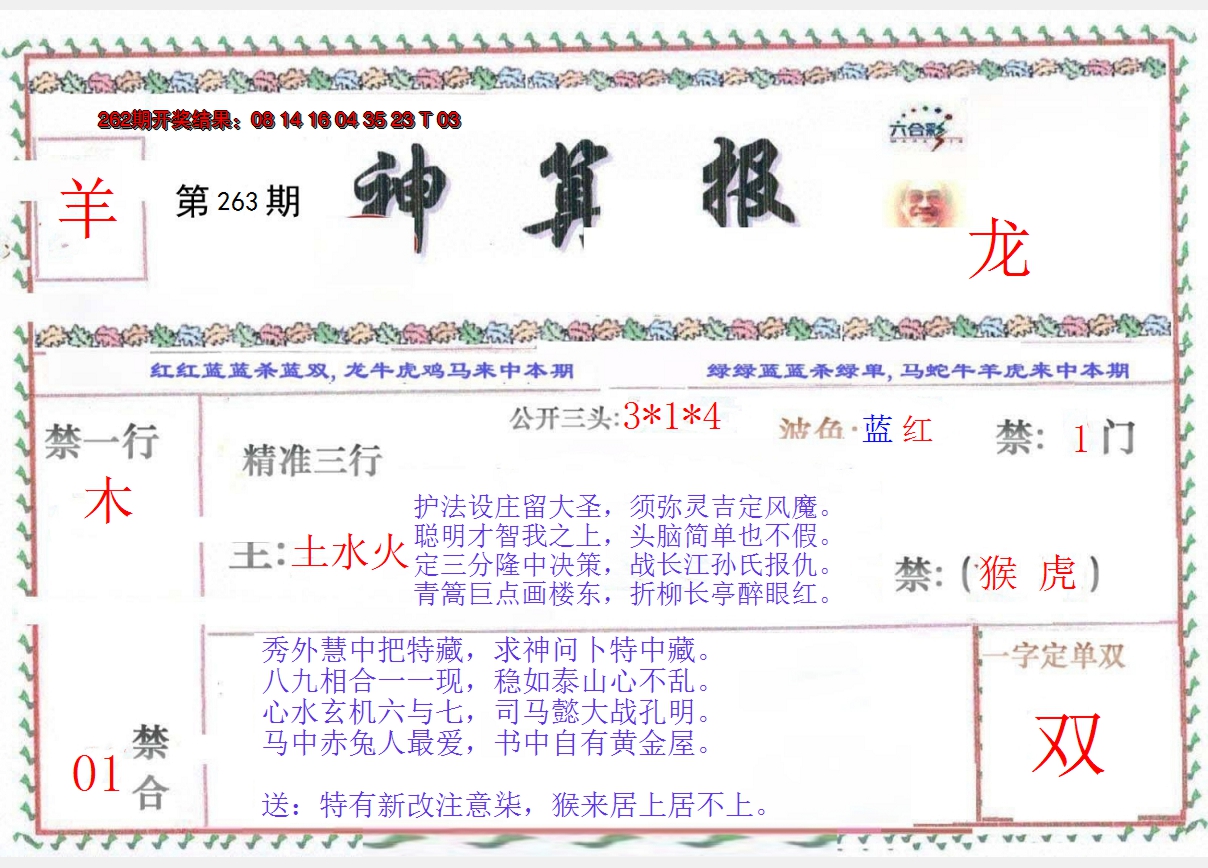 262期开奖结果：08 14 16 04 35 23 T 03
六合彩
羊
第 263 期
神算报
龙
红红蓝蓝杀蓝双, 龙牛虎鸡马来中本期
绿绿蓝蓝杀绿单, 马蛇牛羊虎来中本期
禁一行
木
精准三行
公开三头:3*1*4
波色:蓝 红
禁: 1 门
护法设庄留大圣，须弥灵吉定风魔。
聪明才智我之上，头脑简单也不假。
主:土水火
定三分隆中决策，战长江孙氏报仇。
青篙巨点画楼东，折柳长亭醉眼红。
禁:(猴 虎)
秀外慧中把特藏，求神问卜特中藏。
八九相合一一现，稳如泰山心不乱。
心水玄机六与七，司马懿大战孔明。
马中赤兔人最爱，书中自有黄金屋。
送：特有新改注意柒，猴来居上居不上。
01
禁合
一字定单双
双